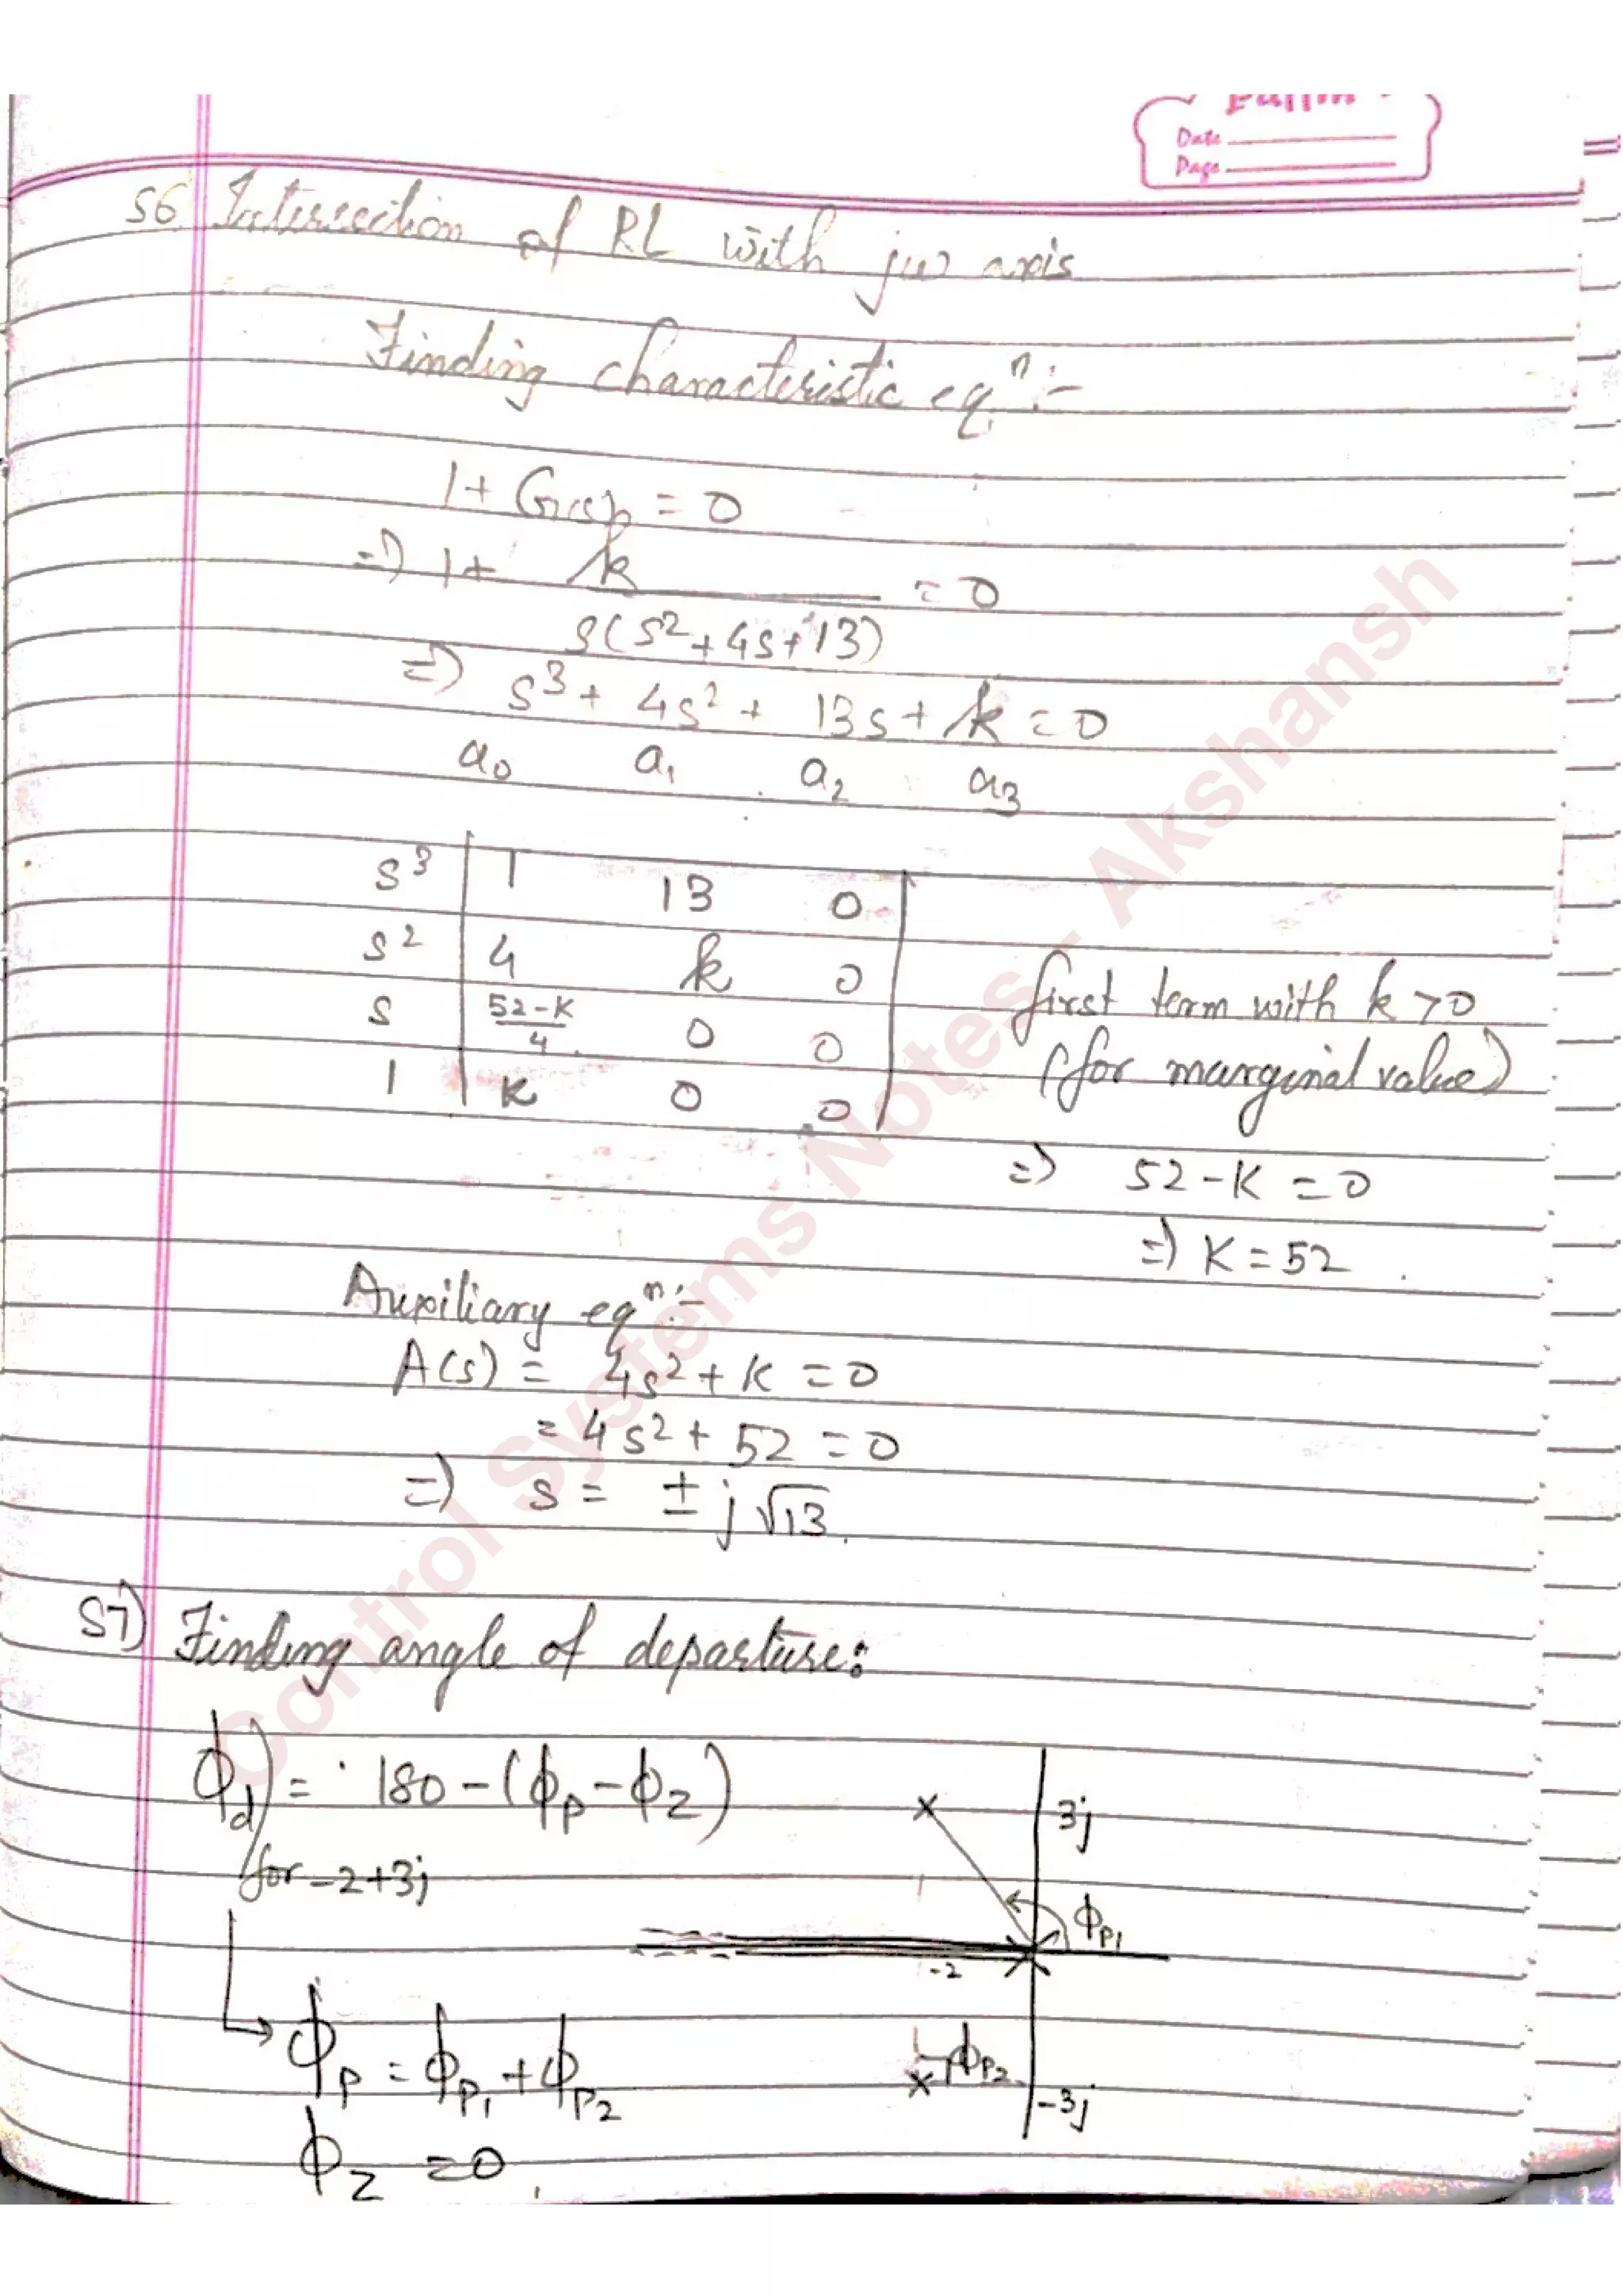 Date
Page
S6. Intersection of RL with jω axis
Finding characteristic eqⁿ :-
1 + G(s) = 0
=) 1 + k / s(s² + 4s + 13) = 0
=) s³ + 4s² + 13s + k = 0
a₀ a₁ a₂ a₃
s³ | 1 13 0
s² | 4 k 0
s | (52-K)/4 0 0
1 | K 0 0
first term with k > 0
(for marginal value)
=) 52 - K = 0
=) K = 52.
Auxiliary eqⁿ :-
A(s) = 4s² + K = 0
= 4s² + 52 = 0
=) s = ± j√13.
S7) Finding angle of departure:
ϕd) = 180 - (ϕp - ϕz)
for -2+3j
ϕp = ϕp₁ + ϕp₂
ϕz = 0.
3j
ϕp₁
-2
ϕp₂
-3j
Control Systems Notes - Akshansh